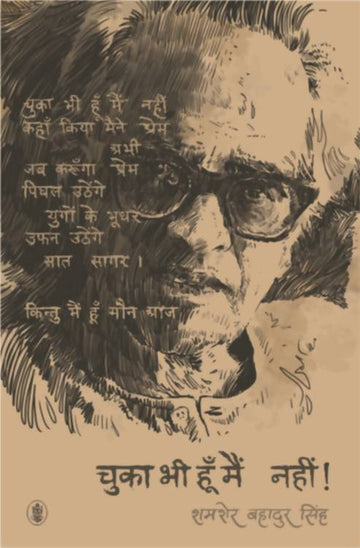 चुका भी हूँ मैं नहीं
कहाँ किया मैंने प्रेम
अभी
जब करूँगा प्रेम
पिघल उठेंगे
युगों के भूधर
उफन उठेंगे
सात सागर ।
किन्तु मैं हूँ मौन आज
चुका भी हूँ मैं नहीं !
शमशेर बहादुर सिंह